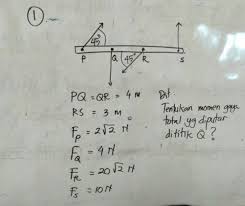 1
45°
45°
P Q R S
PQ = QR = 4 m
RS = 3 m
F_P = 2√2 N
F_Q = 4 N
F_R = 20√2 N
F_S = 10 N
Dit :
Tentukan momen gaya
total yg diputar
dititik Q ?